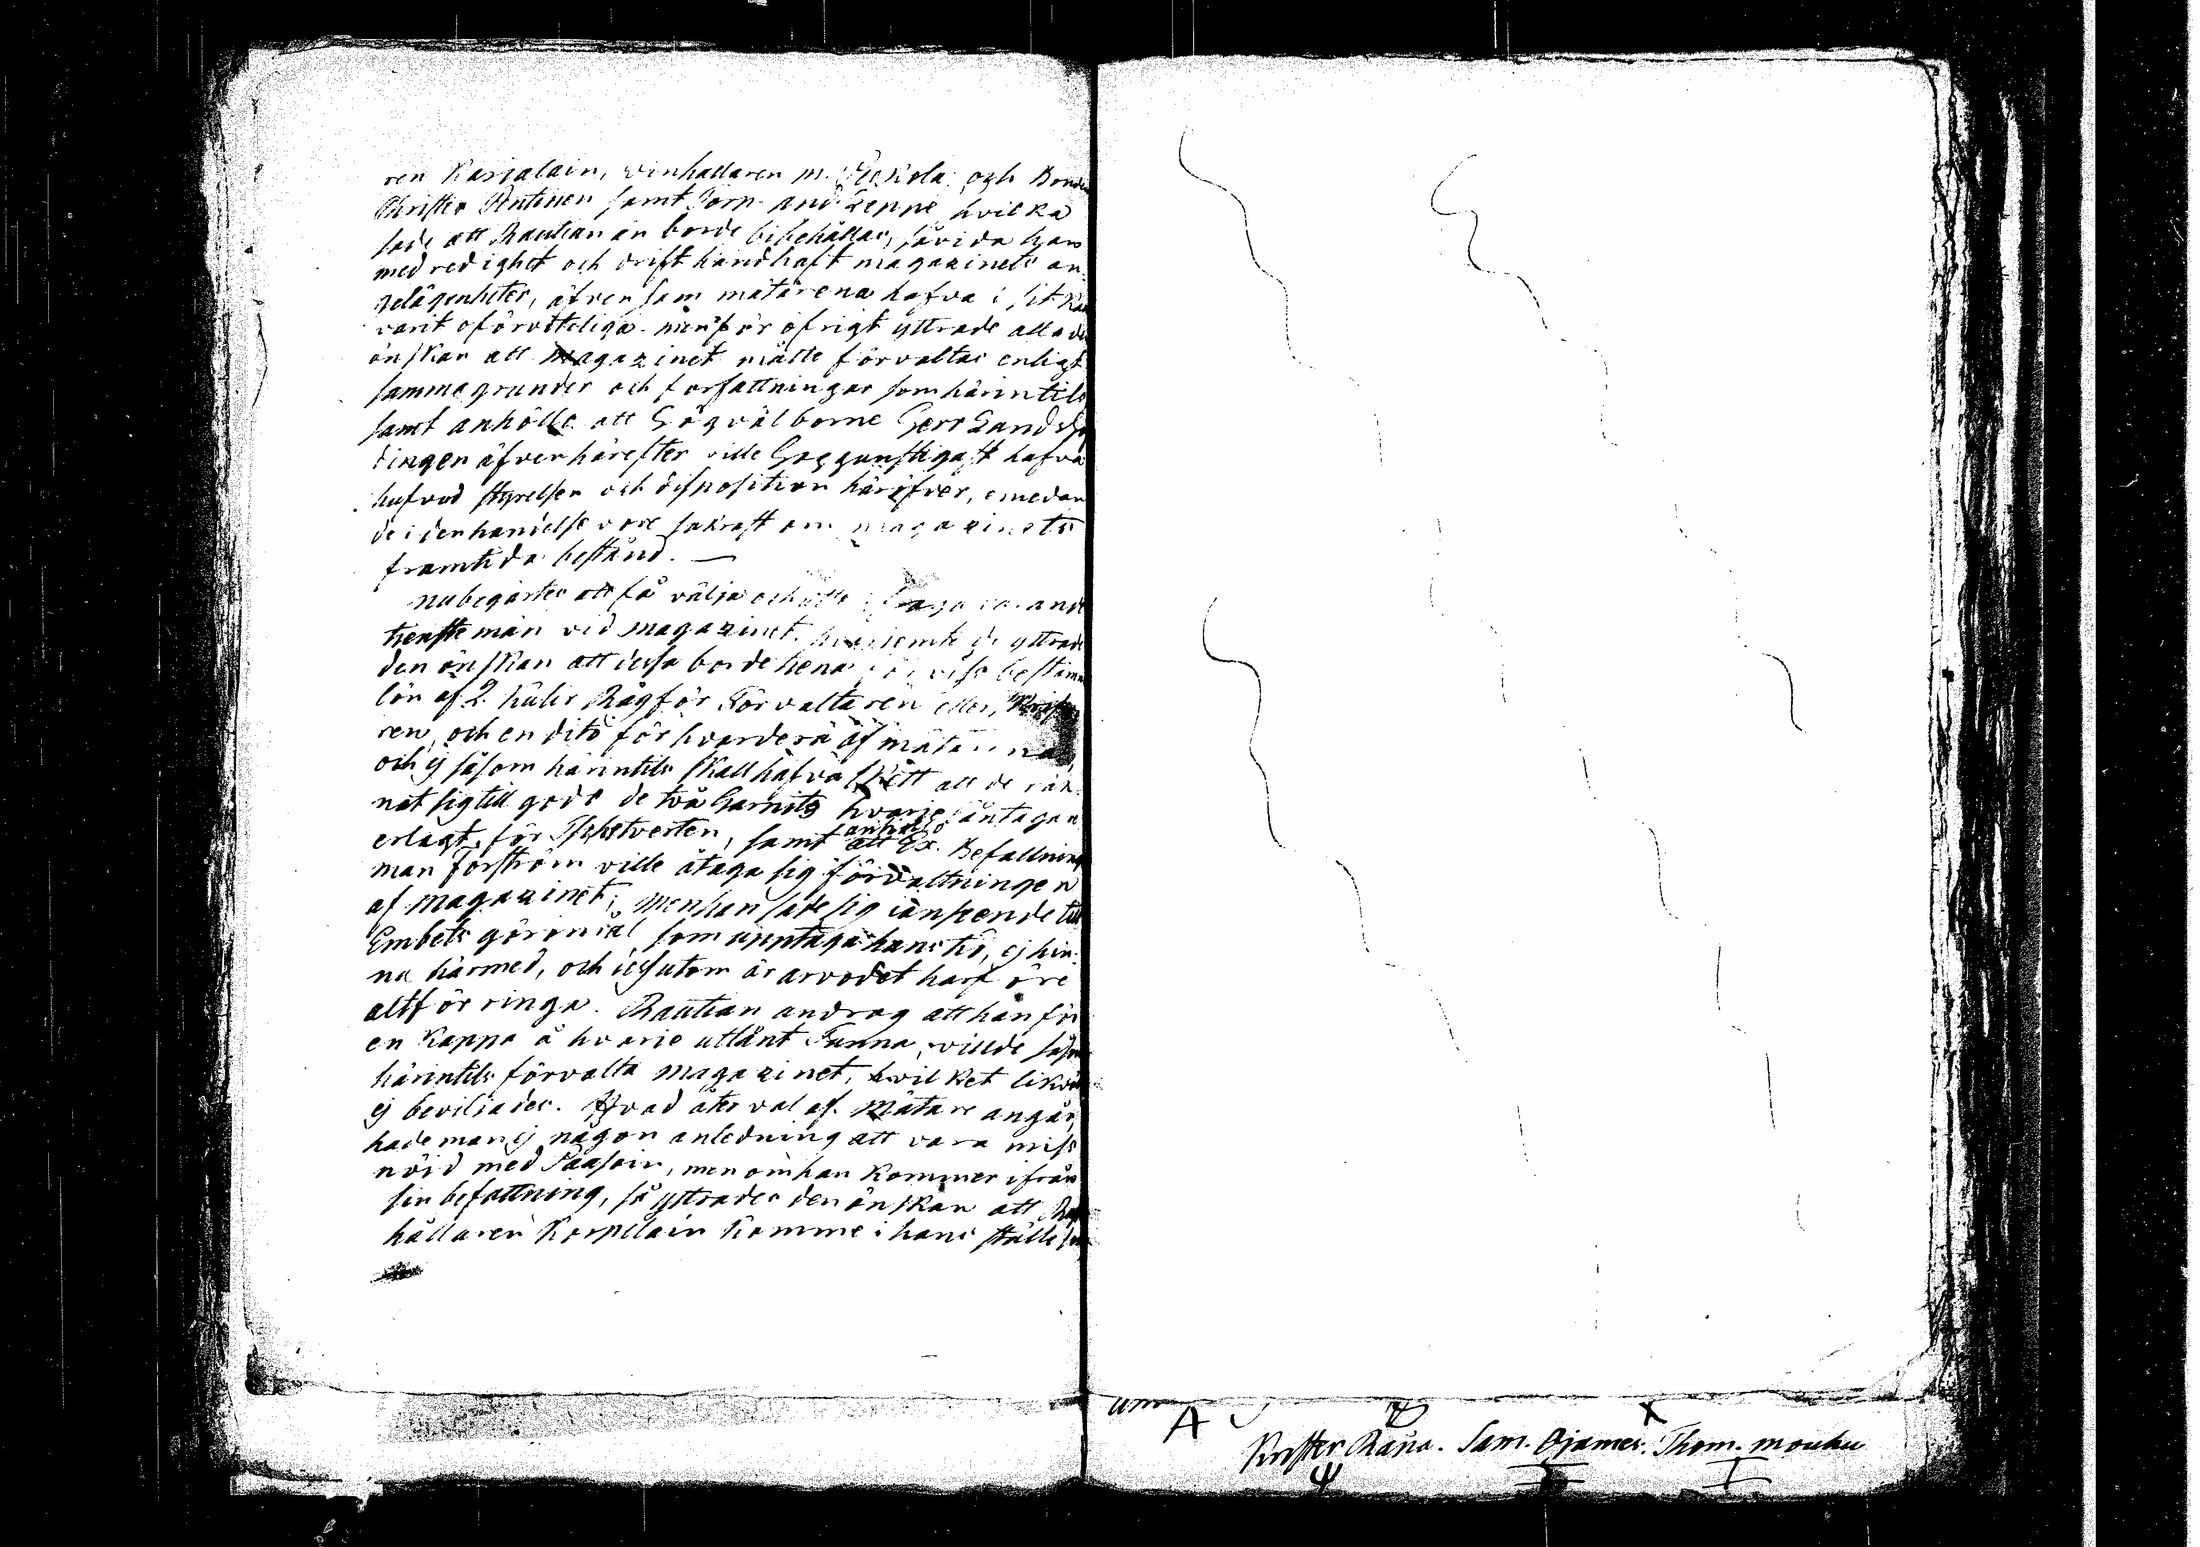 ren Karjalain, vinhallaren m. Peckola, och Bonden
Christer Pentinen samt Torp. And. Leppe, hvilka
sade att Rautianen borde bibehållas, såvida han
med redighet och drift handhaft magazinets an-
gelägenheter, äfven som mätarena hafva i sit kall
varit oförvitteliga. men för öfrigt yttrade alla de
önskan att Magazinet måtte förvaltas enligt
samma grunder och författningar som härintils
samt anhölle att Högvälborne Herr Landshöf
dingen äfven härefter ville Höggunstigast hafva
hufvud styrelsen och disposition häröfver, emedan
de i den händelse vore säkrast om magazinets
framtida bestånd. —
nu begärtes att få välja och
tienstemän vid magazinet. hvarjemte de yttrade
den önskan att dessa borde tiena för viss bestämd
lön af 2. kulir Råg för Förvaltaren eller
ren, och en dito för hvardera af mätarena,
och ej såsom härintils skall hafva skett att de räk-
nat sig till godo de två Garnits hvarje låntagare
erlagt för Tschetverten, samt anhöllo
att Ex. Befallnings
man Forström ville åtaga sig förvaltningen
af magazinet; men han sade sig i anseende till
Embets göromål som upptaga hans tid, ej hin-
na härmed, och dessutom är arvodet härföre
altför ringa. Rautian androg att han för
en kappa å hvarje utlånt Tunna, villde såsom
härintils förvalta magazinet, hvilket likväl
ej beviljades. Hvad åter val af Mätare angår,
hade man ej någon anledning att vara miss
nöjd med Pääsoin, men om han kommer ifrån
sin befattning, så yttrades den önskan att
hållaren Korpelain komme i hans ställe
um
A
Krister Räna. Sam. Ojames. Thom. mouhu